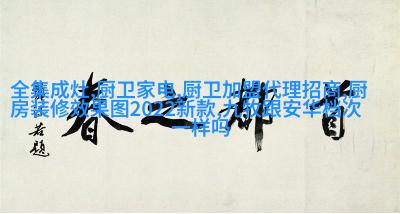 全集成灶,厨卫家电,厨卫加盟代理招商,厨
房装修效果图2022新款,九牧跟安华档次
一样吗
首都之春
若題